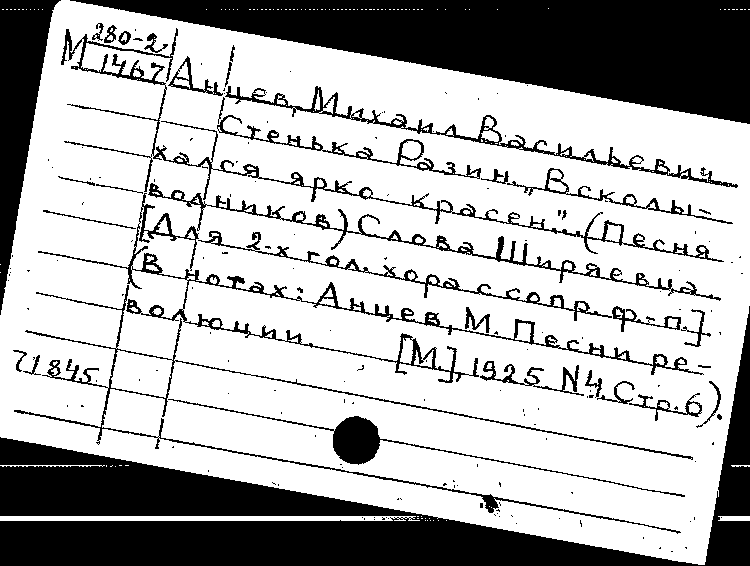 280-2
М 1467
Анцев, Михаил Васильевич
Стенька Разин. „Всколы-
хался ярко красен"... (Песня
водников) Слова Ширяевца.
[Для 2-х гол. хора с сопр. ф.-п.].
(В нотах: Анцев, М. Песни ре-
волюции. [М.], 1925 N4. Стр. 6).
71845